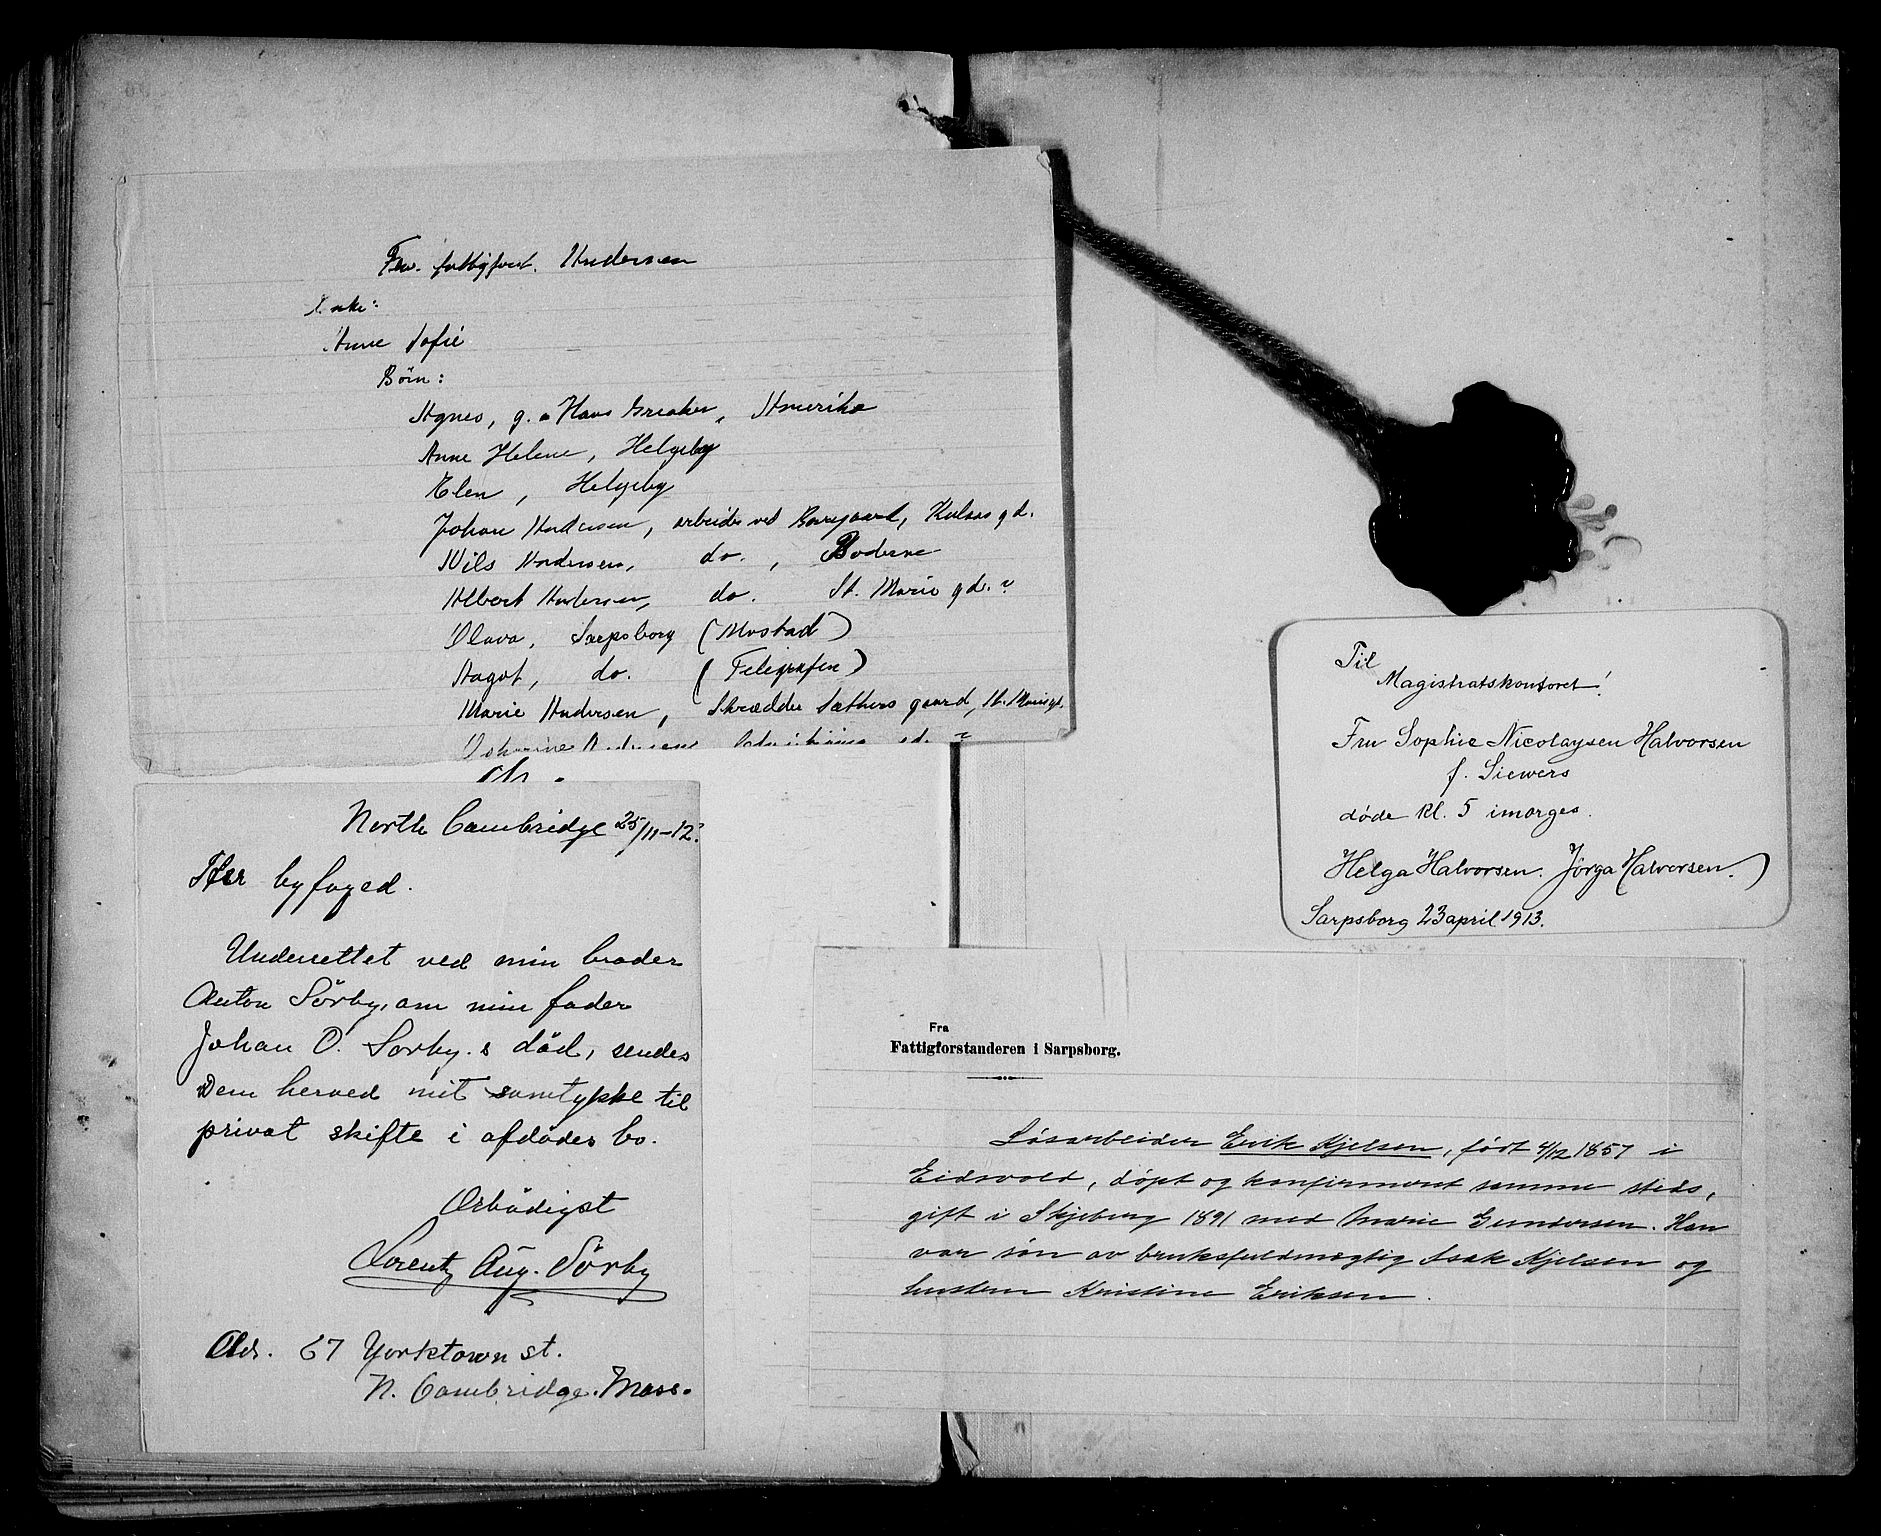 Frv. fattigforst. Andersen
Enke:
Anne Sofie
Børn:
Agnes, g. m Hans Greaker, Amerika
Anne Helene, Helgeby
Elen, Helgeby
Johan Andersen, arbeider ved Borregaard, Kulaas gd.
Nils Andersen, do., Boderne
Albert Andersen, do. St. Marie gd. ?
Olava, Sarpsborg (Mustad)
Aagot, do. (Telegrafen)
Marie Andersen, Skrædder Sæthers gaard, St. Mariegt.
North Cambridge 25/11-12.
Herr byfoged.
Underrettet ved min broder
Anton Sörby, om min fader
Johan O. Sørby.s död, sendes
Dem herved mit samtykke til
privat skifte i afdödes bo.
Ærbödigst
Lorentz Aug. Sörby
Adr. 67 Yorktown st.
N. Cambridge. Mass.
Til
Magistratskontoret!
Fru Sophie Nicolaysen Halvorsen
f. Siewers
døde kl. 5 imorges.
Helga Halvorsen. Jørga Halvorsen.)
Sarpsborg 23 april 1913.
Fra
Fattigforstanderen i Sarpsborg.
Løsarbeider Erik Kjelsen, født 4/12 1857 i
Eidsvold, døpt og konfirmeret samme steds,
gift i Skjeberg 1891 med Marie Gundersen. Han
var søn av bruksfuldmægtig Isak Kjelsen og
hustru Kristine Eriksen.